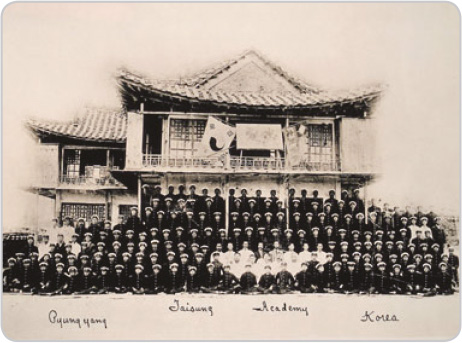 Pyung yang Taisung Academy Korea